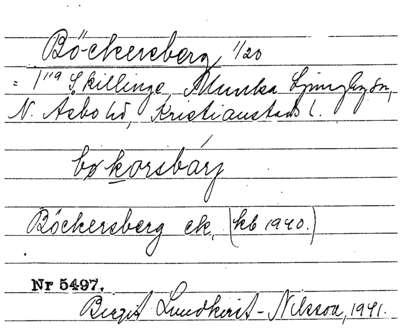 Böckersberg 1/20
= 1¹¹⁹ Skillinge, Munka Ljungby sn,
N. Åsbo hd, Kristianstads l.
bökorsbárj
Böckersberg ek, (kb 1940.)
Nr 5497.
Birgit Lundkvist-Nilsson, 1941.